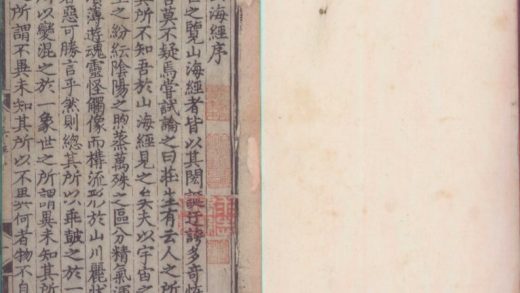 海經序
之覽山海經者皆以其閎誕迂誇多奇怪
莫不疑焉嘗試論之曰莊生有云人之所
其所不知吾於山海經見之矣夫以宇宙之
之紛紜陰陽之煦蒸萬殊之區分精氣渾
薄遊魂靈怪觸像而構流形於山川麗狀
惡可勝言乎然則總其所以乖鼓之於一
所以變混之於一象世之所謂異未知其所
所謂不異未知其所以不異何者物不自